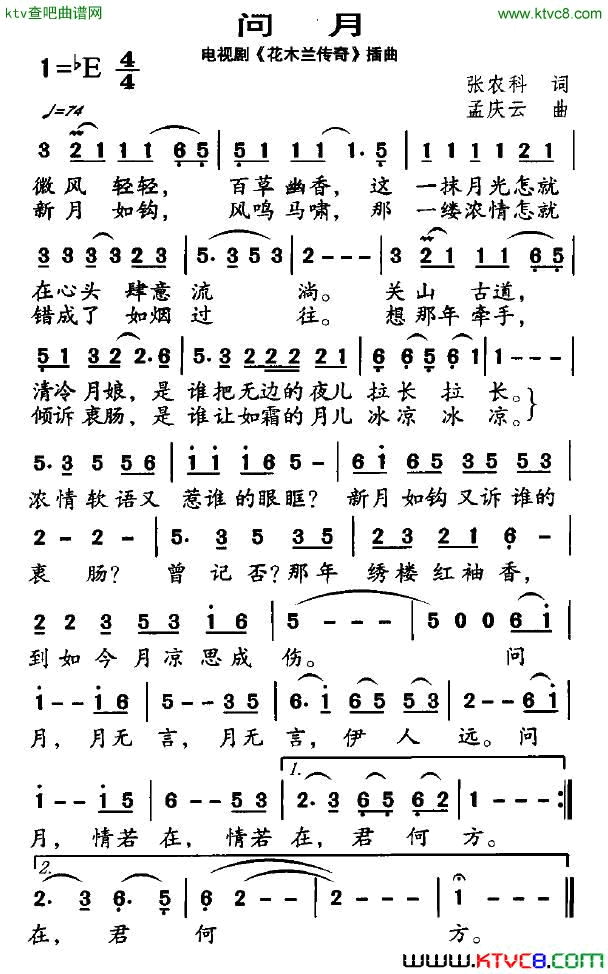 ktv查吧曲谱网
www.ktvc8.com
问 月
电视剧《花木兰传奇》插曲
1=♭E 4/4
♩=74
张农科 词
孟庆云 曲
3 2 1 1 1 6 5 | 5 1 1 1 1· 5 | 1 1 1 1 1 2 1 |
微风 轻轻, 百草幽香, 这 一抹月光怎就
新月 如钩, 风鸣马啸, 那 一缕浓情怎就
3 3 3 3 3 2 3 | 5· 3 5 3 | 2 - - - | 3 2 1 1 1 6 5 |
在心头 肆意流 淌。 关山 古道,
错成了 如烟过 往。 想那年牵手,
5 1 3 2 2· 6 | 5· 3 2 2 2 2 1 | 6 6 5 6 1 | 1 - - - |
清冷月娘, 是 谁把无边的夜儿 拉长 拉长。
倾诉衷肠, 是 谁让如霜的月儿 冰凉 冰凉。
5· 3 5 5 6 | 1 1 1 6 5 - | 5· 6 5 3 3 5 5 3 |
浓情软语又 惹谁的眼眶? 新月如钩又诉谁的
2 - 2 - | 5· 3 5 3 5 | 2 3 2 1 6 |
衷肠? 曾记否? 那年 绣楼红袖香,
2 2 3 5 3 1 6 | 5 - - - | 5 0 0 6 1 |
到如今月凉思成 伤。 问
1 - - 1 6 | 5 - - 3 5 | 6· 1 6 5 5 3 | 2 - - 6 1 |
月, 月无言, 月无言, 伊人远。 问
1 - - 1 5 | 6 - - 5 3 | 2· 3 6 5 6 2 | 1 - - - :‖
1.
月, 情若在, 情若在, 君何方。
2.
2· 3 6· 5 | 6 2 - - | 2 - - - | 1 - - - ‖
在, 君何 方。
www.KTVC8.com